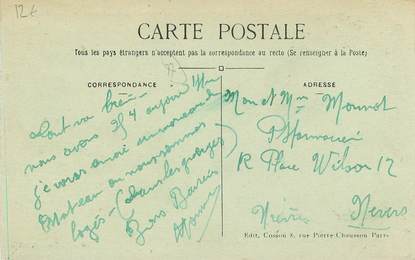 12€
CARTE POSTALE
Tous les pays étrangers n'acceptent pas la correspondance au recto (Se renseigner à la Poste)
CORRESPONDANCE
ADRESSE
Tout va bien
nous avons
je vous envoi un morceau du
Chateau ou nous sommes
logés (dans les granges)
Bons Baisers
Mon et Mme Monnot
R Place Wilson 12
Nevers
Nièvre
Edit. Cosson 8, rue Pierre-Chausson Paris